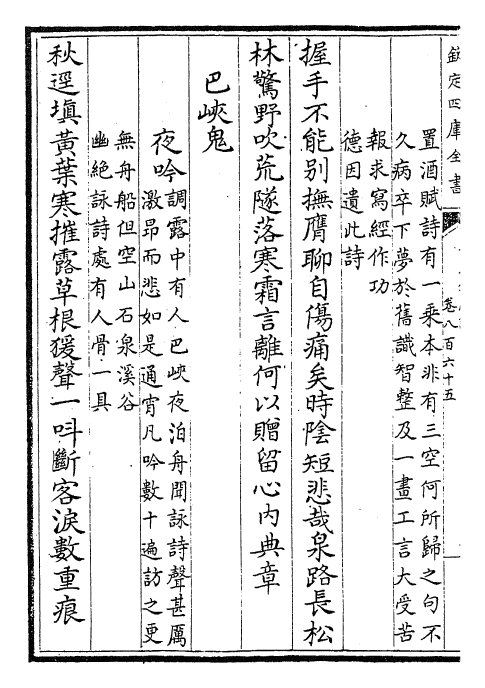 欽定四庫全書
卷八百六十五
置酒賦詩有一乗本非有三空何所歸之句不
久病卒下夢於舊識智整及一畫工言大受苦
報求寫經作功
德因遺此詩
握手不能别撫膺聊自傷痛矣時陰短悲哉泉路長松
林驚野吹荒隧落寒霜言離何以贈留心内典章
巴峽鬼
夜吟
調露中有人巴峽夜泊舟聞詠詩聲甚厲
激昂而悲如是通宵凡吟數十遍訪之更
無舟船但空山石泉溪谷
幽絶詠詩處有人骨一具
秋逕填黄葉寒摧露草根猨聲一呌斷客淚數重痕